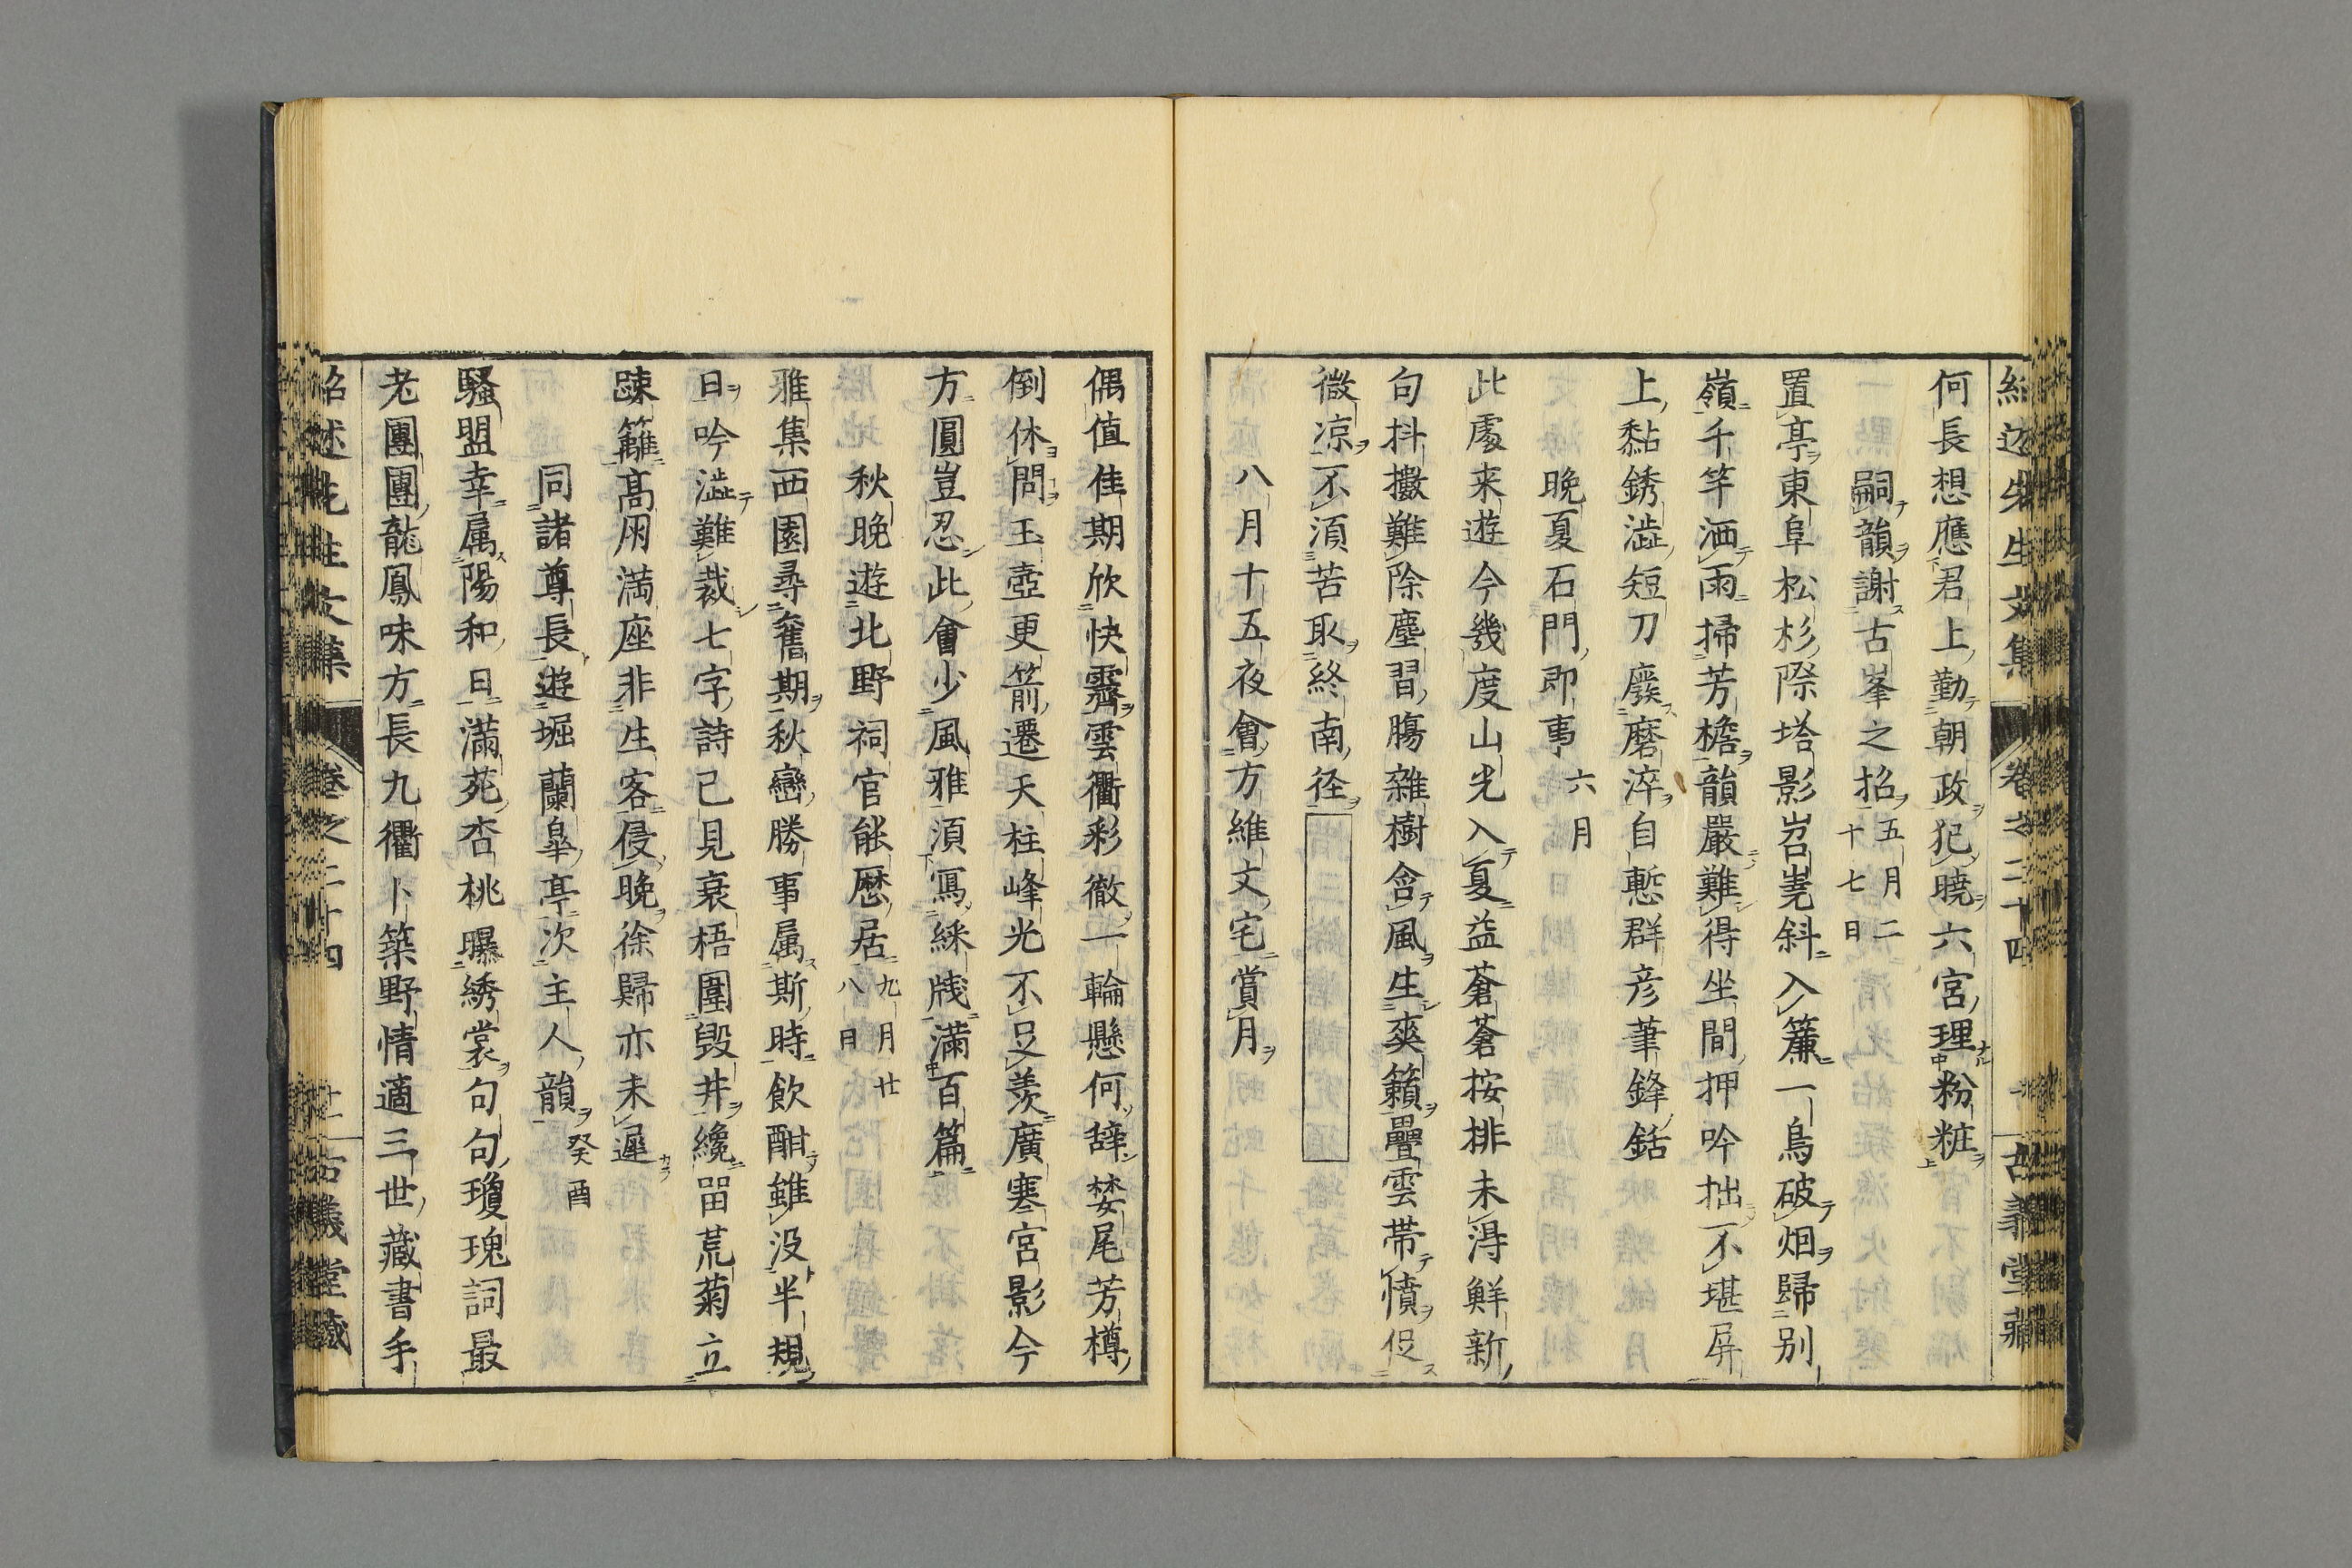 紹述先生文集 卷之二十四 古義堂藏
何長想應君上勤朝政犯曉六宮理粉粧
嗣韻謝古峯之招五月二十七日
置亭東阜松杉際塔影岧嶤斜入簾一鳥破烟歸別
嶺千竿洒雨掃芳檐韻嚴難得坐間押吟拙不堪屏
上黏銹澁短刀廢磨淬自慙群彥筆鋒銛
晚夏石門即事六月
此處来遊今幾度山光入夏益蒼蒼按排未淂鮮新
句抖擻難除塵習膓雜樹含風生爽籟疊雲帯憤促
微凉不須苦取終南径
八月十五夜會方維文宅賞月
偶值佳期欣快霽雲衢彩徹一輪懸何辞婪尾芳樽
倒休問玉壺更箭遷天柱峰光不足羡廣寒宮影今
方圓豈忍此會少風雅須寫綵牋滿百篇
秋晚遊北野祠官能歷居九月廿八日
雅集西園尋舊期秋巒勝事属斯時飲酣雖没半規
日吟澁難裁七字詩已見衰梧圍毀井纔留荒菊立
踈籬高朋満座非生客侵晚徐歸亦未遲
同諸尊長遊堀蘭皐亭次主人韻癸酉
騷盟幸属陽和日滿苑杏桃曝綉裳句句瓊瑰詞最
老團團龍鳳味方長九衢卜築野情適三世藏書手
紹述先生文集 卷之二十四 十二 古義堂藏